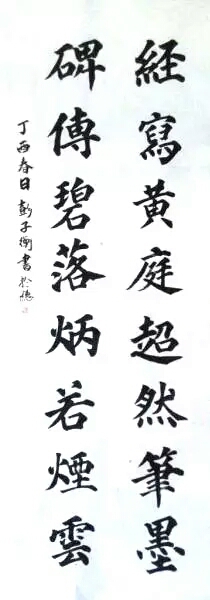 經寫黃庭超然筆墨
碑傳碧落炳若煙雲
丁酉春日彭子衡書於